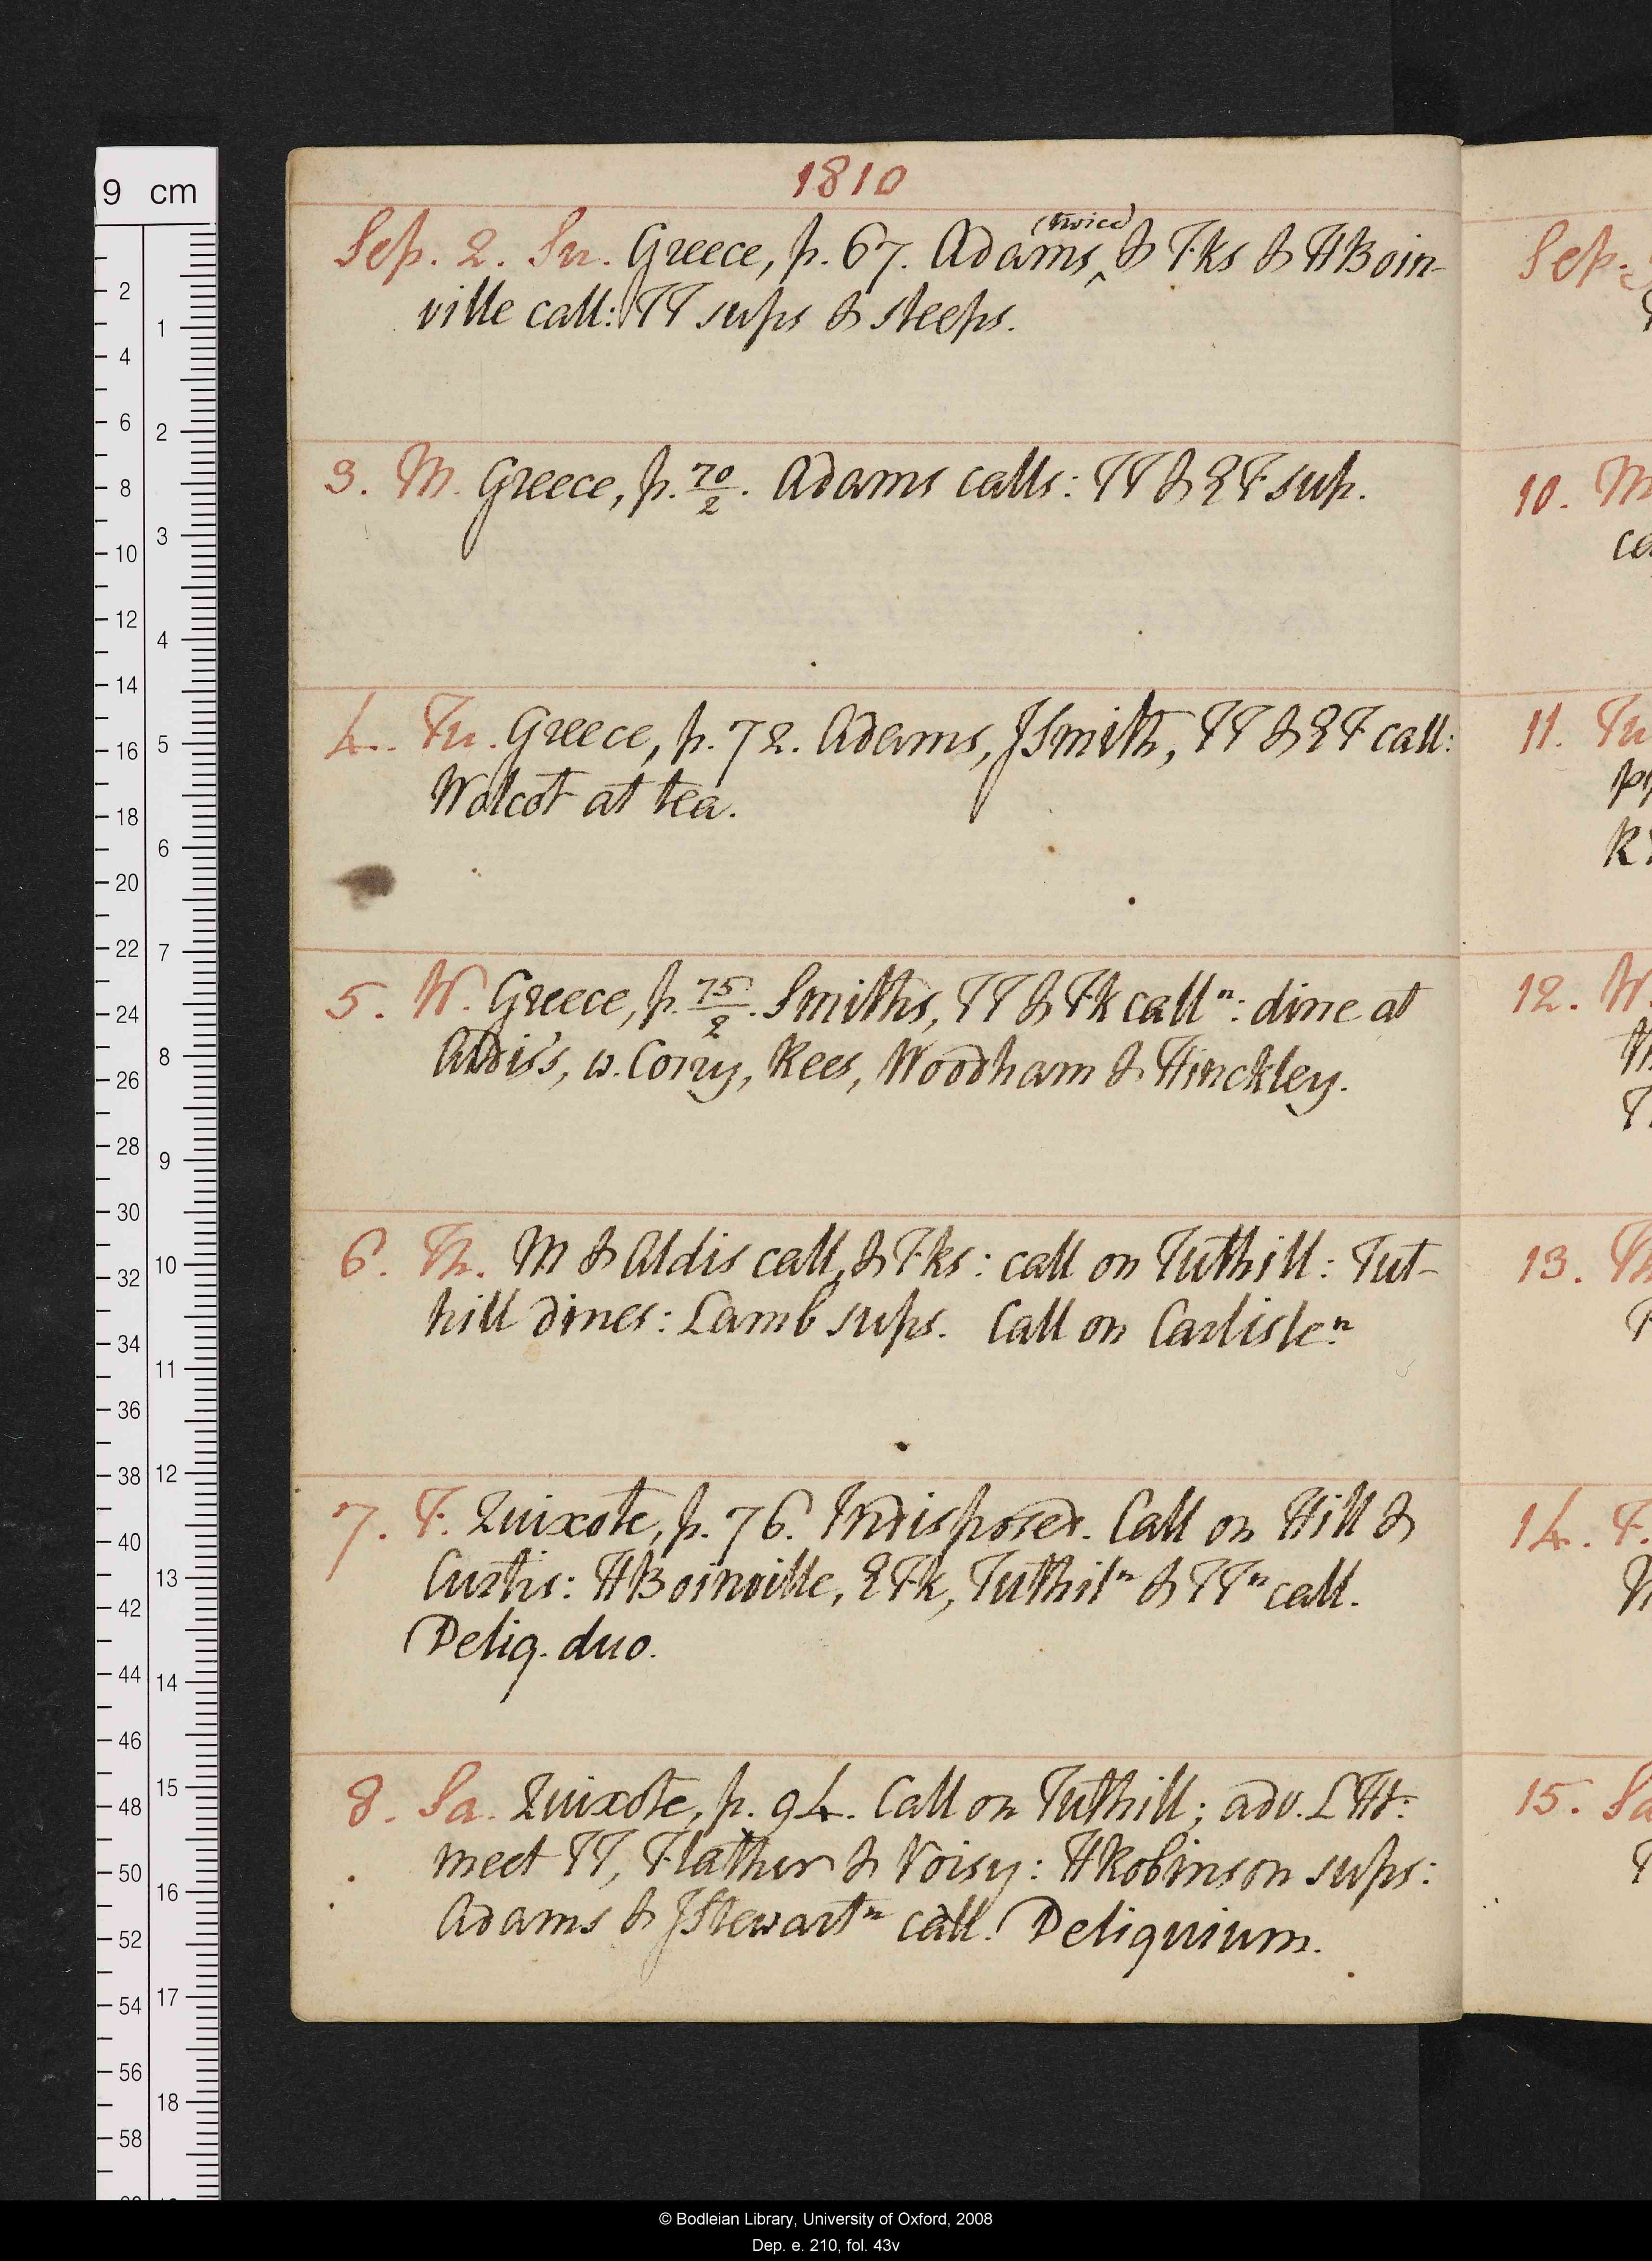 1810
Sep. 2. Su. Greece, p. 67. Adams (twice) & F.ks & HBoin-
ville call: TT sups & sleeps.
3. M. Greece, p. 70/2. Adams calls: TT & EF sup.
4. Tu. Greece, p. 72. Adams, JSmith, TT & EF call:
Wolcot at tea.
5. W. Greece, p. 75/2. Smiths, TT & Fk callⁿ: dine at
Aldis's, w. Corry, Rees, Woodham & Hinckley.
6. Th. M & Aldis call, & F.ks: call on Tuthill: Tut-
hill dines: Lamb sups. Call on Carlisleⁿ
7. F. Quixote, p. 76. Indisposed. Call on Hill &
Curtis: HBoinville, EFk, Tuthilⁿ & TTⁿ call.
Deliq. duo.
8. Sa. Quixote, p. 94. Call on Tuthill; adv. LHt:
meet TT, Flather & Voisy: HRobinson sups:
Adams & JStewartⁿ call. Deliquium.
Sep.
10. M
11. Tu
12. W.
13. Th
14. F.
15. Sa
9 cm
2 4 6 8 10 12 14 16 18 20 22 24 26 28 30 32 34 36 38 40 42 44 46 48 50 52 54 56 58
1 2 3 4 5 6 7 8 9 10 11 12 13 14 15 16 17 18
© Bodleian Library, University of Oxford, 2008
Dep. e. 210, fol. 43v